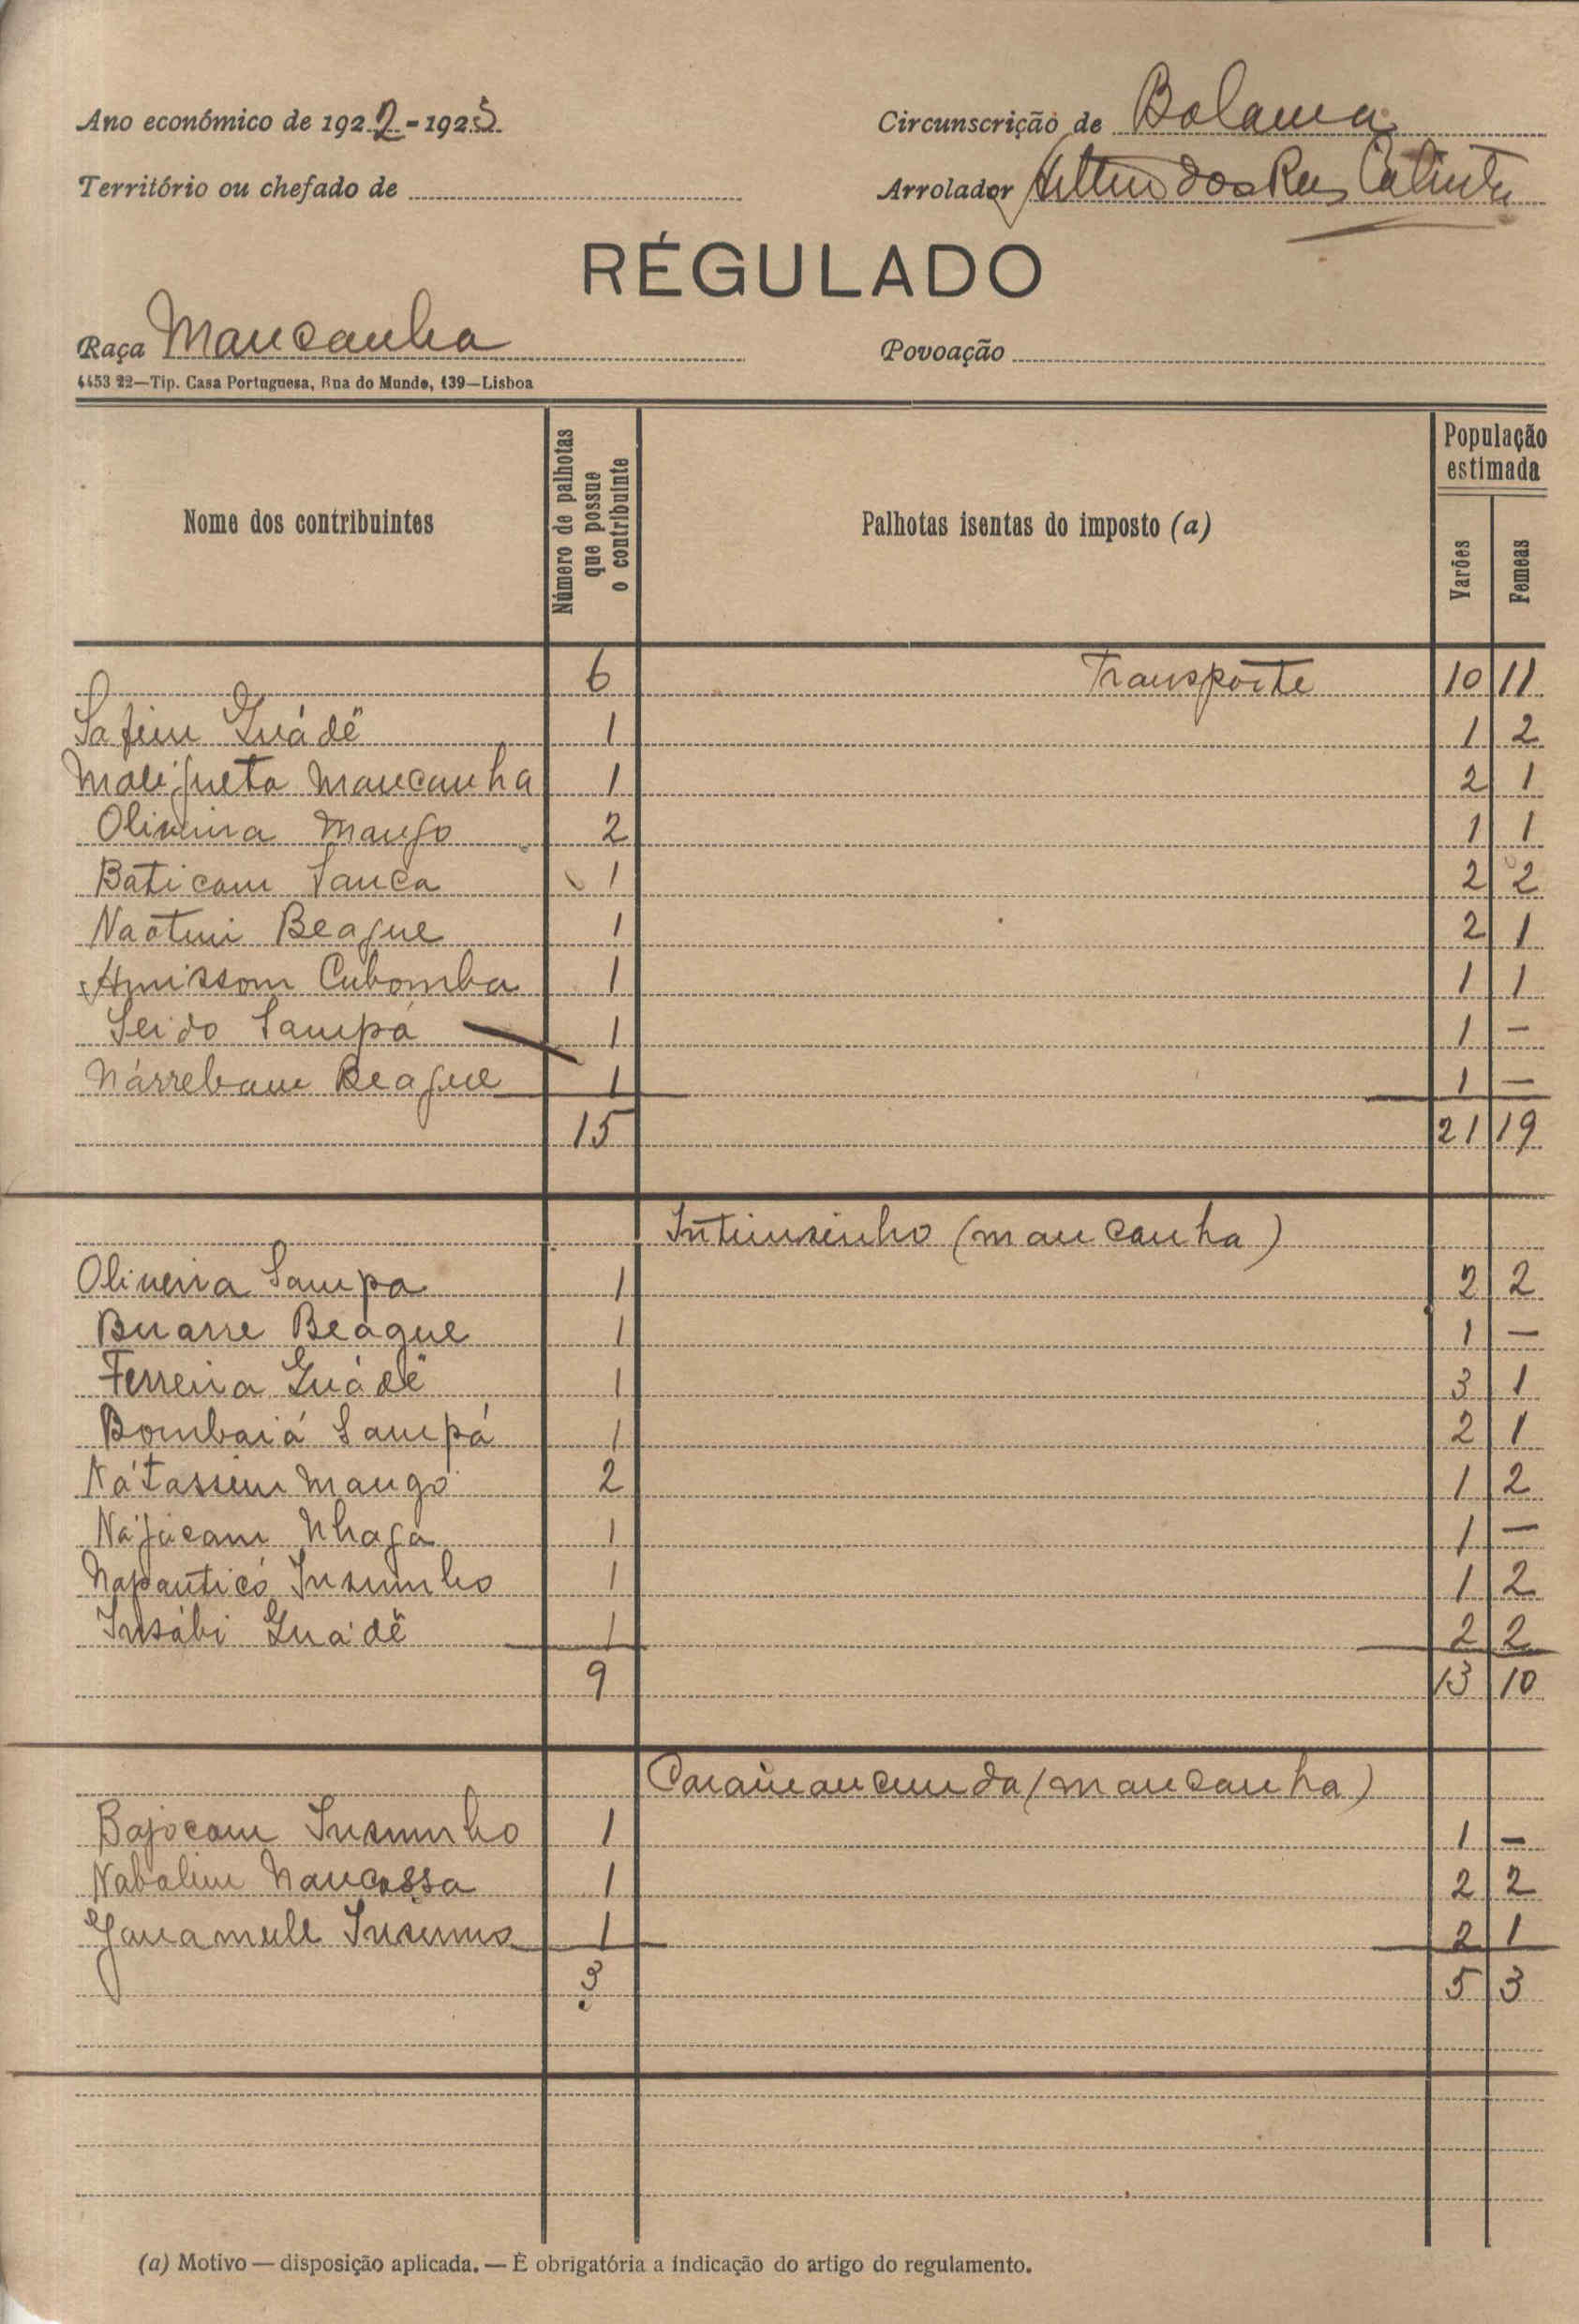 Ano económico de 1922-1923
Circunscrição de Bolama
Território ou chefado de
Arrolador dos Reis
RÉGULADO
Raça Mancanha
Povoação
4453 22—Tip. Casa Portuguesa, Rua do Mundo, 139—Lisboa
Nome dos contribuintes
Número de palhotas que possue o contribuinte
Palhotas isentas do imposto (a)
População estimada
Varões
Femeas
6 Transporte 10 11
Safim Guádê 1 1 2
Maligueta Mancanha 1 2 1
Oliveira Mango 2 1 1
Baticam Sanca 1 2 2
Naotim Beague 1 2 1
Amissom Cubomba 1 1 1
Seido Sampá 1 1 —
Nárrebam Beague 1 1 —
15 21 19
Intimsinho (mancanha)
Oliveira Sampa 1 2 2
Buarre Beague 1 1 —
Ferreira Guádê 1 3 1
Bombaiá Sampá 1 2 1
Nátassim Mango 2 1 2
Nájucam Nhaga 1 1 —
Napanticó Insumho 1 1 2
Insábi Guádê 1 2 2
9 13 10
(mancanha)
Bajocam Insumho 1 1 —
Nabalim Nancassa 1 2 2
1 2 1
3 5 3
(a) Motivo — disposição aplicada. — É obrigatória a indicação do artigo do regulamento.